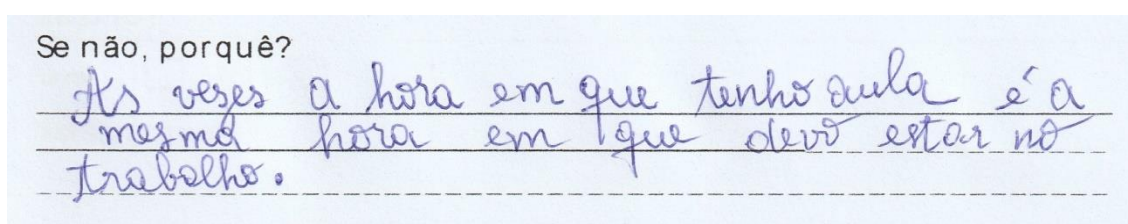 Se não, porquê?
As vezes a hora em que tenho aula é a
mesma hora em que devo estar no
trabalho.